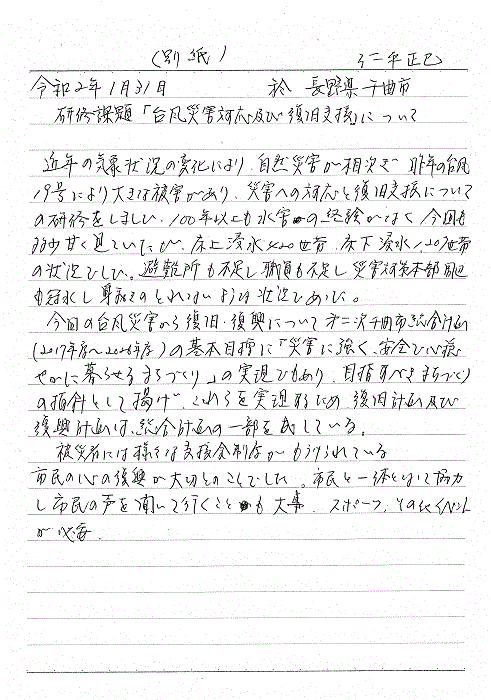 (別紙)
仁平正巳
令和2年1月31日 於 長野県千曲市
研修課題「台風災害対応及び復旧支援」について
近年の気象状況の変化により、自然災害が相次ぎ 昨年の台風
19号により大きな被害があり、災害への対応と復旧支援について
の研修をしました。100年以上も水害の経験がなく 今回も
甘く見ていたが、床上浸水 世帯 床下浸水 世帯
の状況でした。避難所も不足し職員も不足し災害対策本部周辺
も冠水し身動きのとれないような状況であった。
今回の台風災害から復旧・復興について第二次千曲市総合計画
(2017年度〜2026年度)の基本目標に「災害に強く、安全で心穏
やかに暮らせるまちづくり」の実現でもあり、目指すべきまちづくり
の指針として掲げ、これらを実現するため 復旧計画及び
復興計画は、総合計画の一部を成している。
被災者には様々な支援金制度がもうけられている
市民の心の復興が大切とのことでした。市民と一体となって協力
し市民の声を聞いて行くことも大事 スポーツ、その他イベント
が必要。